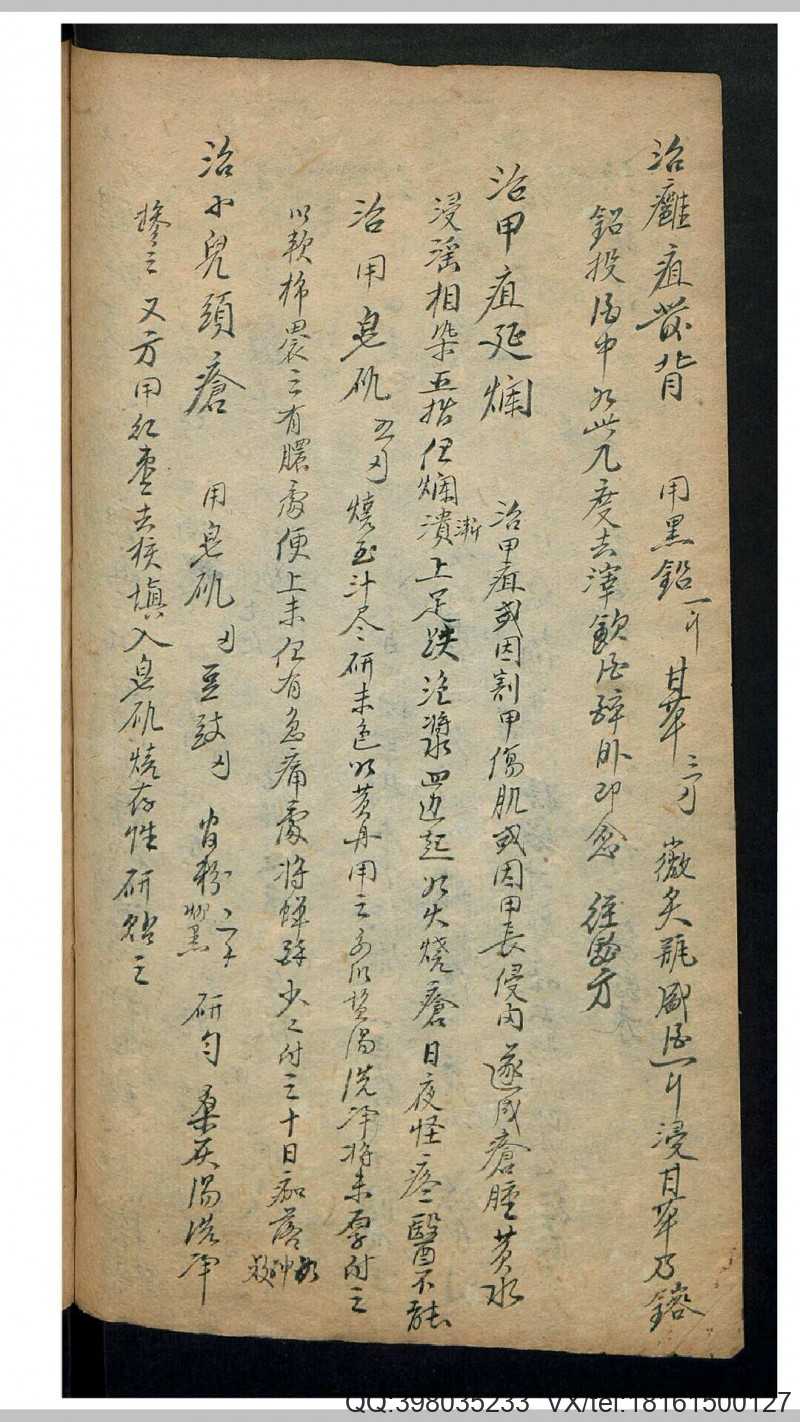 治癰疽發背 用黑鉛一斤甘草三刃微炙瓶盛酒一斤浸甘草乃鎔
鉛投酒中如此九度去滓飲酒醉卧即愈 經驗方
治甲疽延爛 治甲疽或因割甲傷肌或因甲長侵肉遂成瘡腫黃水
浸淫相染五指但爛潰漸上足趺泡漿四边起如火燒瘡日夜怪疼醫不能
治用皂矾五刃燒至汁尽研末色如黃丹用之先以塩湯洗净将末厚付之
以軟棉裹之有膿處便上末但有急痛處将少少付之十日痂落如神效
治小兒頭瘡 用皂矾刃豆豉刃 炒黑 研匀 桑灰湯洗净
摻之又方用紅枣去核填入皂矾燒存性研貼之
QQ:398035233 VX/tel:18161500127